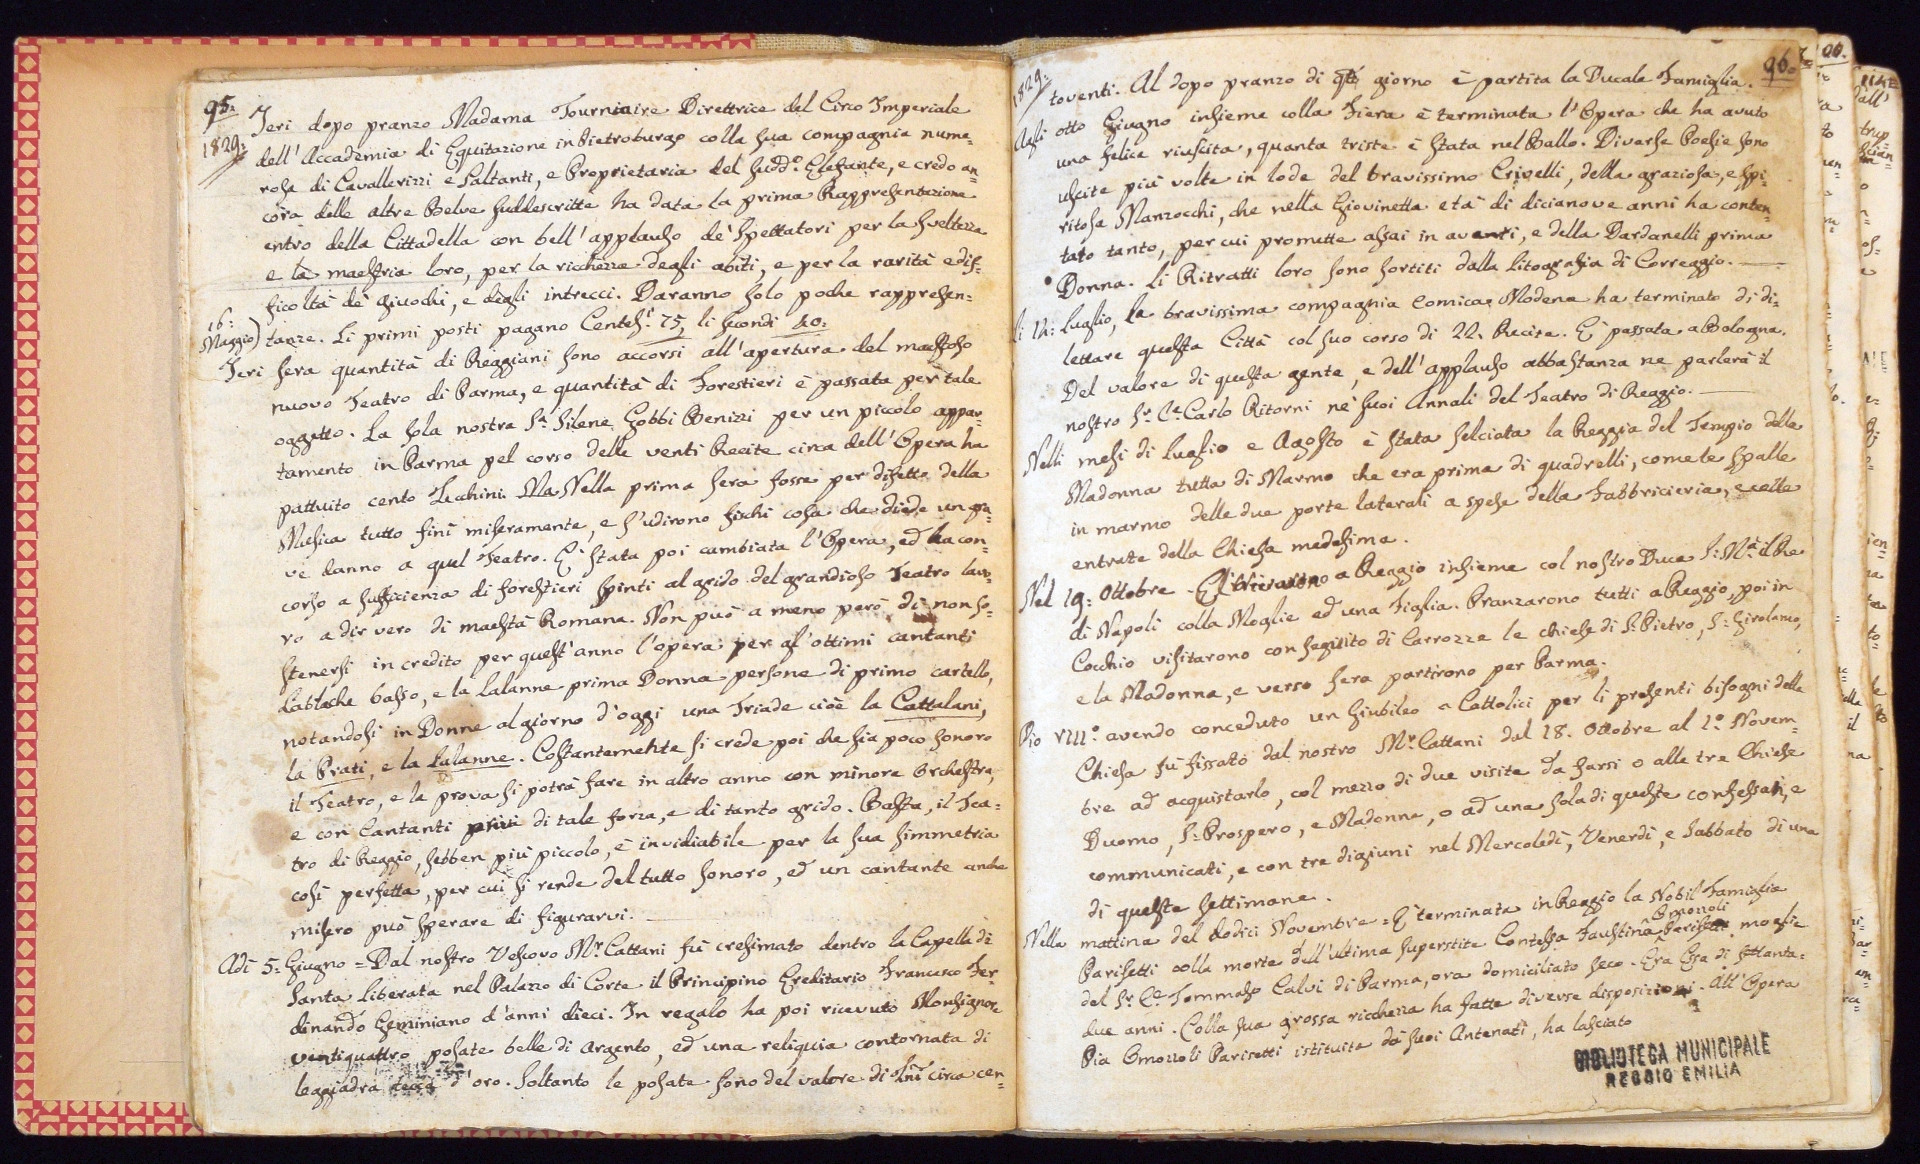 95.
1829:
Jeri dopo pranzo Madama Tourniaire Direttrice del Circo Imperiale
dell' Accademia di Equitazione in Pietroburgo colla sua compagnia nume-
rosa di Cavallerizzi e Saltanti, e Proprietaria del sudd.º Elefante, e credo an-
cora delle altre Belve suddescritte ha data la prima Rappresentazione
entro della Cittadella con bell' applauso de' Spettatori per la sveltezza
e la maestria loro, per la ricchezza degli abiti, e per la rarità e dif-
ficoltà de' giuochi, e degli intrecci. Daranno solo poche rappresen=
tanze. Li primi posti pagano Centes.i 75, li secondi 40:
16:
Maggio)
Jeri sera quantità di Reggiani sono accorsi all' apertura del maestoso
nuovo Teatro di Parma, e quantità di Forestieri è passata per tale
oggetto. La sola nostra S.a Silene Gobbi Benizzi per un piccolo appar-
tamento in Parma pel corso delle venti Recite circa dell' Opera ha
pattuito cento Zecchini. Ma Nella prima sera fosse per difetto della
Musica tutto finì miseramente, e s'udirono fischi cosa che diede un gra-
ve danno a quel Teatro. E' stata poi cambiata l' Opera, ed ha con-
corso a sufficienza di forestieri spinti al grido del grandioso Teatro lavo-
ro a dir vero di maestà Romana. Non può a meno però di non so-
stenersi in credito per quest' anno l'opera per gl' ottimi cantanti
Lablache basso, e la Lalanne prima Donna persone di primo cartello,
notandosi in Donne al giorno d'oggi una Triade cioè la Cattalani,
la Prati, e la Lalanne. Costantemente si crede poi che sia poco sonoro
il Teatro, e la prova si potrà fare in altro anno con minore Orchestra,
e con Cantanti di tale forza, e di tanto grido. Basta, il Tea=
tro di Reggio, sebben più piccolo, è invidiabile per la sua simmetria
così perfetta, per cui si rende del tutto sonoro, ed un cantante anche
misero può sperare di figurarvi.
Adì 5: Giugno = Dal nostro Vescovo M.r Cattani fù cresimato dentro la Capella di
Santa Liberata nel Palazzo di Corte il Principino Ereditario Francesco Fer-
dinando Geminiano d'anni dieci. In regalo ha poi ricevuto Monsignore
ventiquattro posate belle di argento, ed una reliquia contornata di
leggiadra d'oro. Soltanto le posate sono del valore di circa cen-
96.
1829:
toventi. Al dopo pranzo di qto giorno è partita la Ducale Famiglia.
Agli otto Giugno insieme colla Fiera è terminata l'Opera che ha avuto
una felice riuscita, quanta triste è stata nel Ballo. Diverse Poesie sono
uscite più volte in lode del bravissimo Crivelli, della graziosa, e spi-
ritosa Manzocchi, che nella Giovinetta età di dicianove anni ha conten-
tato tanto, per cui promette assai in avanti, e della Dardanelli prima
Donna. Li Ritratti loro sono sortiti dalla Litografia di Correggio.
li 12: Luglio, la bravissima compagnia Comica Modena ha terminato di di-
lettare questa Città col suo corso di 22. Recite. E' passata a Bologna.
Del valore di questa gente, e dell' applauso abbastanza ne parlerà il
nostro S.r C.e Carlo Ritorni ne' suoi Annali del Teatro di Reggio.
Nelli mesi di Luglio e Agosto è stata selciata la Reggia del Tempio della
Madonna tutta di Marmo che era prima di quadrelli, come le spalle
in marmo delle due porte laterali a spese della Fabbricieria, e colle
entrate della Chiesa medesima.
Nel 19: Ottobre arrivarono a Reggio insieme col nostro Duca S: M.tà il Re
di Napoli colla Moglie ed una Figlia. Pranzarono tutti a Reggio, poi in
Cocchio visitarono con seguito di Carrozze le chiese di S: Pietro, S: Girolamo,
e la Madonna, e verso sera partirono per Parma.
Pio VIII.º avendo conceduto un Giubileo a Cattolici per li presenti bisogni della
Chiesa fù fissato dal nostro M.r Cattani dal 18. Ottobre al 1.º Novem-
bre ad acquistarlo, col mezzo di due visite da farsi o alle tre Chiese
Duomo, S: Prospero, e Madonna, o ad una sola di queste confessati, e
communicati, e con tre digiuni nel Mercoledì, Venerdì, e Sabbato di una
di queste settimane.
Nella mattina del dodici Novembre = E' terminata in Reggio la Nobil Famiglia
Parisetti colla morte dell' ultima superstite Contessa Faustina Omozzoli Parisetti moglie
del S.r C.e Tommaso Calvi di Parma, ora domiciliato seco. Era Essa di settanta=
due anni. Colla sua grossa ricchezza ha fatte diverse disposizioni. All' Opera
Pia Omozzoli Parisetti istituita da' suoi Antenati, ha lasciato
BIBLIOTECA MUNICIPALE
REGGIO EMILIA